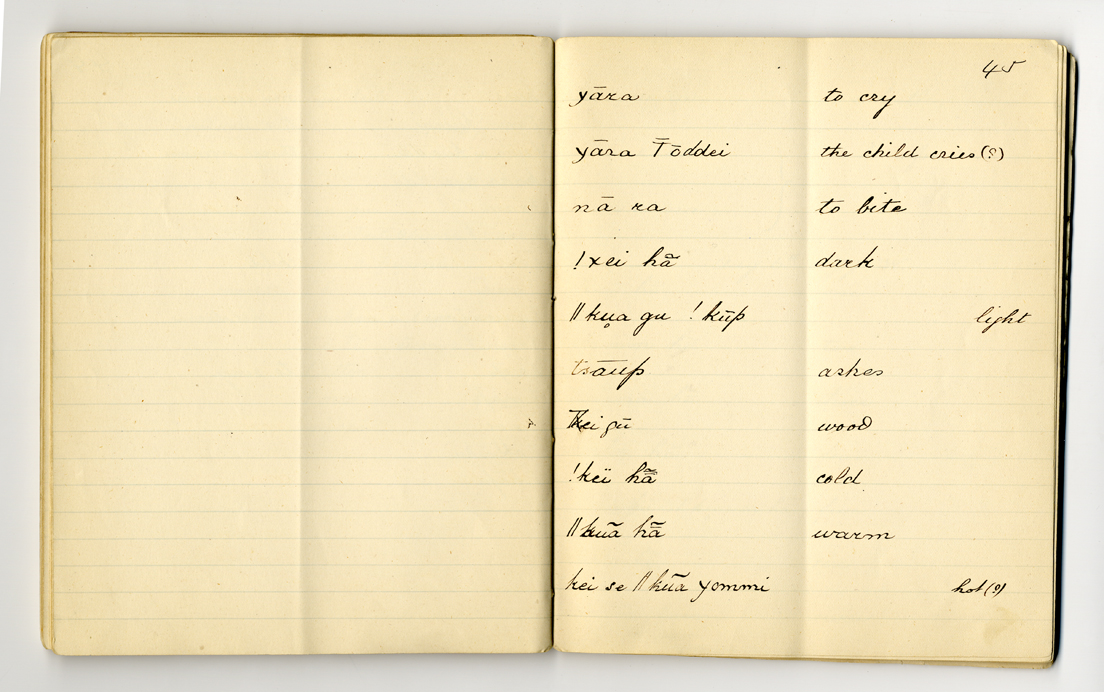 45
yāra to cry
yāra to cry the child cries (?)
nā ra to bite
!xei hã dark
ǁku̥a gu !kūp light
tsāup ashes
gū wood
!keï hã̄ cold
ǁkuã hã̄ warm
kei se ǁkũa yommi hot (?)